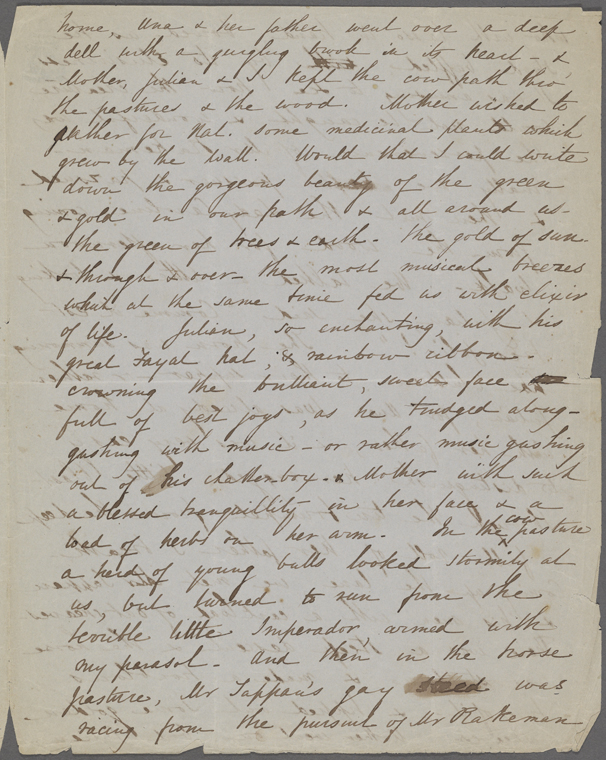 home, Una & her father went over a deep
dell with a gurgling brook in its heart - &
Mother, Julian & I kept the cow path thro'
the pastures & the wood. Mother wished to
gather for Nat. some medicinal plants which
grew by the wall. Would that I could write
down the gorgeous beauty of the green
& gold in our path & all around us -
the green of trees & earth - the gold of sun.
& through & over - the most musical breezes
what at the same time fed us with elixir
of life. Julian, so enchanting, with his
great Fayal hat, & rainbow ribbon -
crowning the brilliant, sweet face
full of best joys, as he trudged along -
gushing with music - or rather music gushing
out of his chatter-box - & Mother with such
a blessed tranquillity in her face & a
load of herbs on her arm. In the cow pasture
a herd of young bulls looked stormily at
us, but turned to run from the
terrible little Imperador, armed with
my parasol - and then in the horse
pasture, Mr Tappan's gay steed was
racing from the pursuit of Mr Rakeman